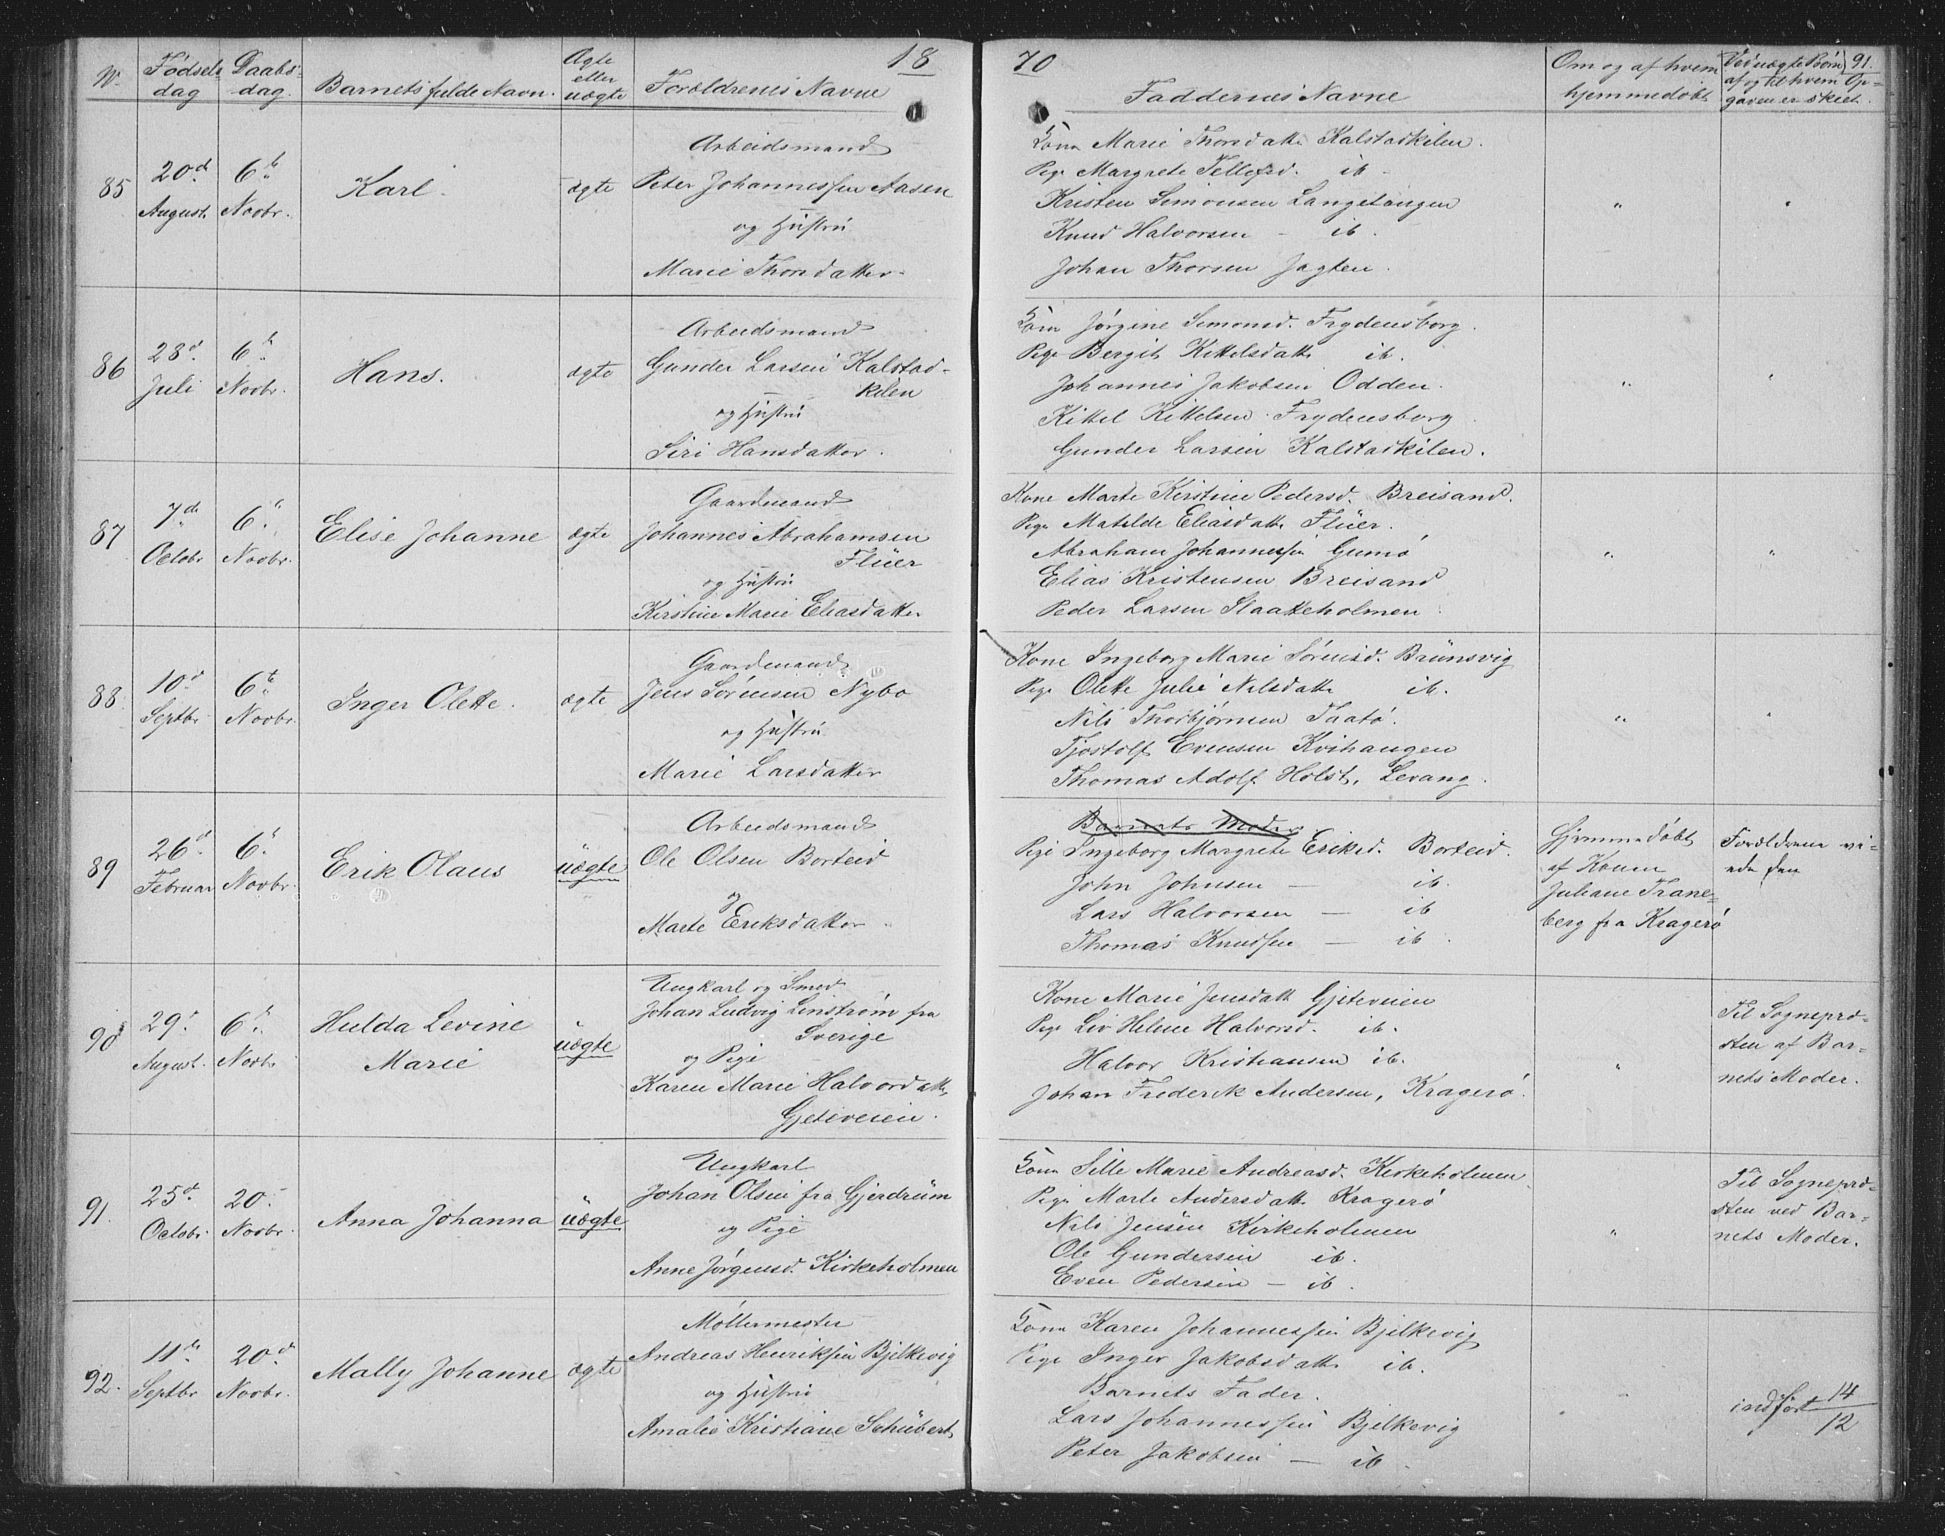 18 70
91.
No. Fødsels dag Daabs- dag. Barnets fulde Navn. Ægte eller uægte Forældrenes Navne Faddernes Navne Om og af hvem hjemmedøbt Ved uægte Børn af og til hvem Op- gaven er skeet.
85
20de August
6te Novbr.
Karl.
ægte
Arbeidsmand
Peter Johannessen Aasen
og Hustru
Marie Thorsdatter.
Kone Marie Thorsdatt. Kalstadkilen.
Pige Margrete Tellefsd. ib.
Kristen Simonsen Langetangen
Knud Halvorsen – ib.
Johan Thorsen Jagten.
"
"
86
28d. Juli
6te Novbr.
Hans.
ægte
Arbeidsmand
Gunder Larsen Kalstad-
kilen
og Hustru
Siri Hansdatter.
Kone Jørgine Simonsd. Frydensborg.
Pige Bergit Kittelsdatt. ib.
Johannes Jakobsen Odden.
Kittel Kittelsen Frydensborg
Gunder Larsen Kalstadkilen.
"
"
87
7de Octobr
6te Novbr.
Elise Johanne
ægte
Gaardmand
Johannes Abrahamsen
Flüer
og Hustru
Kirstine Marie Eliasdatter
Kone Marte Kirstine Pedersd. Breisand.
Pige Matilde Eliasdatt. Flüer.
Abraham Johannessen Gumø
Elias Kristensen Breisand
Peder Larsen Slaatteholmen
"
"
88
10d Septbr
6te Novbr.
Inger Olette.
ægte
Gaardmand
Jens Sørensen Nybo
og Hustru
Marie Larsdatter
Kone Ingeborg Marie Sørensd. Brünsvig
Pige Olette Julie Nilsdatt. ib.
Nils Thorbjørnsen Taatø.
Tjostolf Evensen Kvihaugen
Thomas Adolf Holst, Levang.
"
"
89
26d. Februar
6te Novbr.
Erik Olaus
uægte
Arbeidsmand
Ole Olsen Borteid
og
Marte Eriksdatter.
Barnets Moder
Pige Ingeborg Margrete Eriksd. Borteid.
John Johnsen – ib.
Lars Halvorsen – ib
Thomas Knudsen – ib.
Hjemmedøbt
af Konen
Juliane Trane-
berg fra Kragerø
Forældrene vi-
ede
90
29d August.
6te Novbr
Hulda Levine
Marie
uægte
Ungkarl og Smed
Johan Ludvig Linstrøm fra
Sverige
og Pige
Karen Marie Halvordatt.
Gjeteveien.
Kone Marie Jensdatt. Gjeteveien
Pige Liv Helene Halvorsd. ib.
Halvor Kristiansen ib.
Johan Frederik Andersen, Kragerø.
"
Til Sognepræ-
sten af Bar-
nets Moder.
91.
25d. Octobr.
20. Novbr.
Anna Johanna
uægte
Ungkarl
Johan Olsen fra Gjerdrüm
og Pige
Anne Jørgensd. Kirkeholmen
Kone Sille Marie Andreasd. Kirkeholmen
Pige Marte Andersdatt. Kragerø
Nils Jensen Kirkeholmen
Ole Gundersen ib.
Even Pedersen – ib.
"
Til Sognepræ-
sten ved Bar-
nets Moder.
92.
11te Septbr
20d Novbr.
Mally Johanne
ægte
Møllermester
Andreas Henriksen Bjelkevig
og Hustru
Amalie Kristiane Schübert
Kone Karen Johannessen Bjelkevig
Pige Inger Jakobsdatt. ib.
Barnets Fader.
Lars Johannessen Bjelkevig
Peter Jakobsen – ib.
indført 14/12